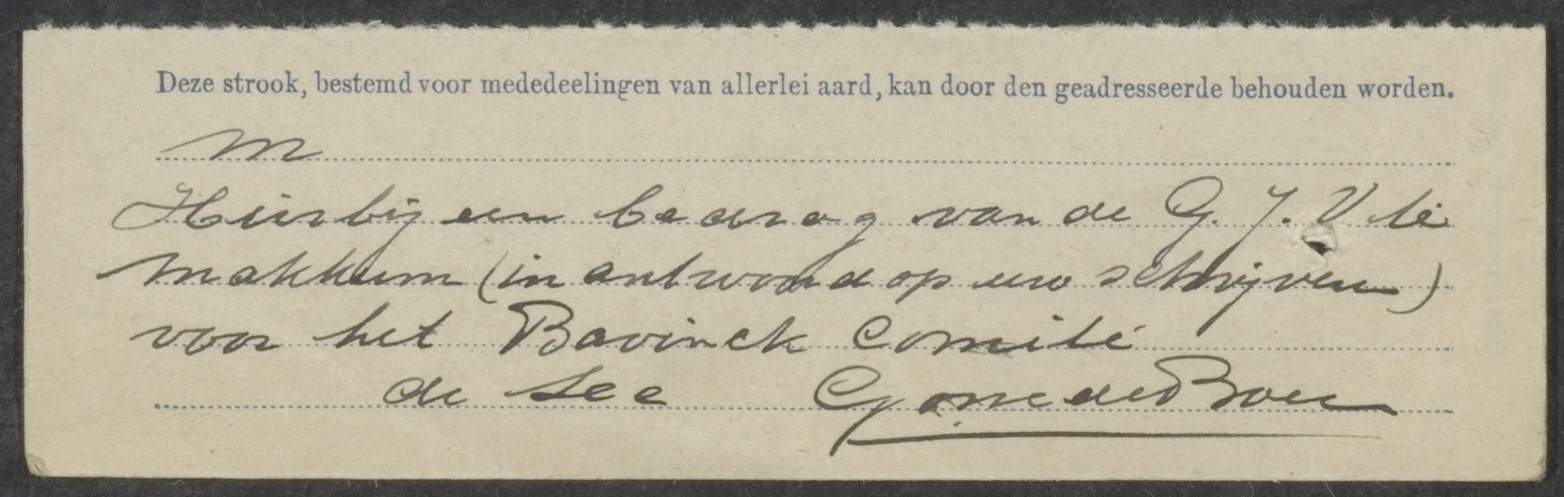 Deze strook, bestemd voor mededeelingen van allerlei aard, kan door den geadresseerde behouden worden.
M
Hierbij een bedrag van de G. J. V te
Makkum (in antwoord op uw schrijven)
voor het Bavinck Comité
de Sec